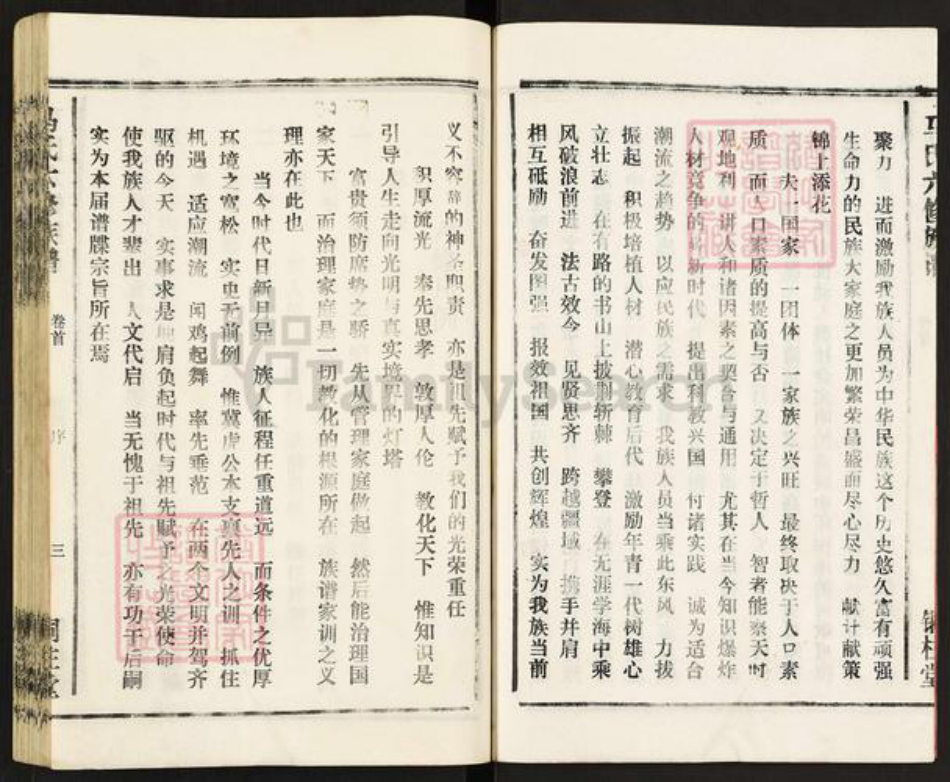 六修族谱
铜柱堂
聚力 进而激励我族人员为中华民族这个历史悠久富有顽强
生命力的民族大家庭之更加繁荣昌盛而尽心尽力 献计献策
锦上添花
夫一国家 一团体 一家族之兴旺 最终取决于人口素
质 而人口素质的提高与否 又决定于哲人 智者能察天时
观地利 讲人和诸因素之契合与通用 尤其在当今知识爆炸
人材竞争的崭新时代 提出科教兴国 付诸实践 诚为适合
潮流之趋势 以应民族之需求 我族人员当乘此东风 力拔
振起 积极培植人材 潜心教育后代 激励年青一代树雄心
立壮志 在有路的书山上披荆斩棘 攀登 在无涯学海中乘
风破浪前进 法古效今 见贤思齐 跨越疆域 携手并肩
相互砥励 奋发图强 报效祖国 共创辉煌 实为我族当前
义不容辞的神圣职责 亦是祖先赋予我们的光荣重任
积厚流光 奉先思孝 敦厚人伦 教化天下 惟知识是
引导人生走向光明与真实境界的灯塔
富贵须防席势之骄 先从管理家庭做起 然后能治理国
家天下 而治理家庭是一切教化的根源所在 族谱家训之义
理亦在此也
当今时代日新月异 族人征程任重道远 而条件之优厚
环境之宽松 实史无前例 惟冀虎公本支禀先人之训 抓住
机遇 适应潮流 闻鸡起舞 率先垂范 在两个文明并驾齐
驱的今天 实事求是地肩负起时代与祖先赋予之光荣使命
使我族人才辈出 人文代启 当无愧于祖先 亦有功于后嗣
实为本届谱牒宗旨所在焉
六修族谱
卷首
序
三
铜柱堂
FamilySearch